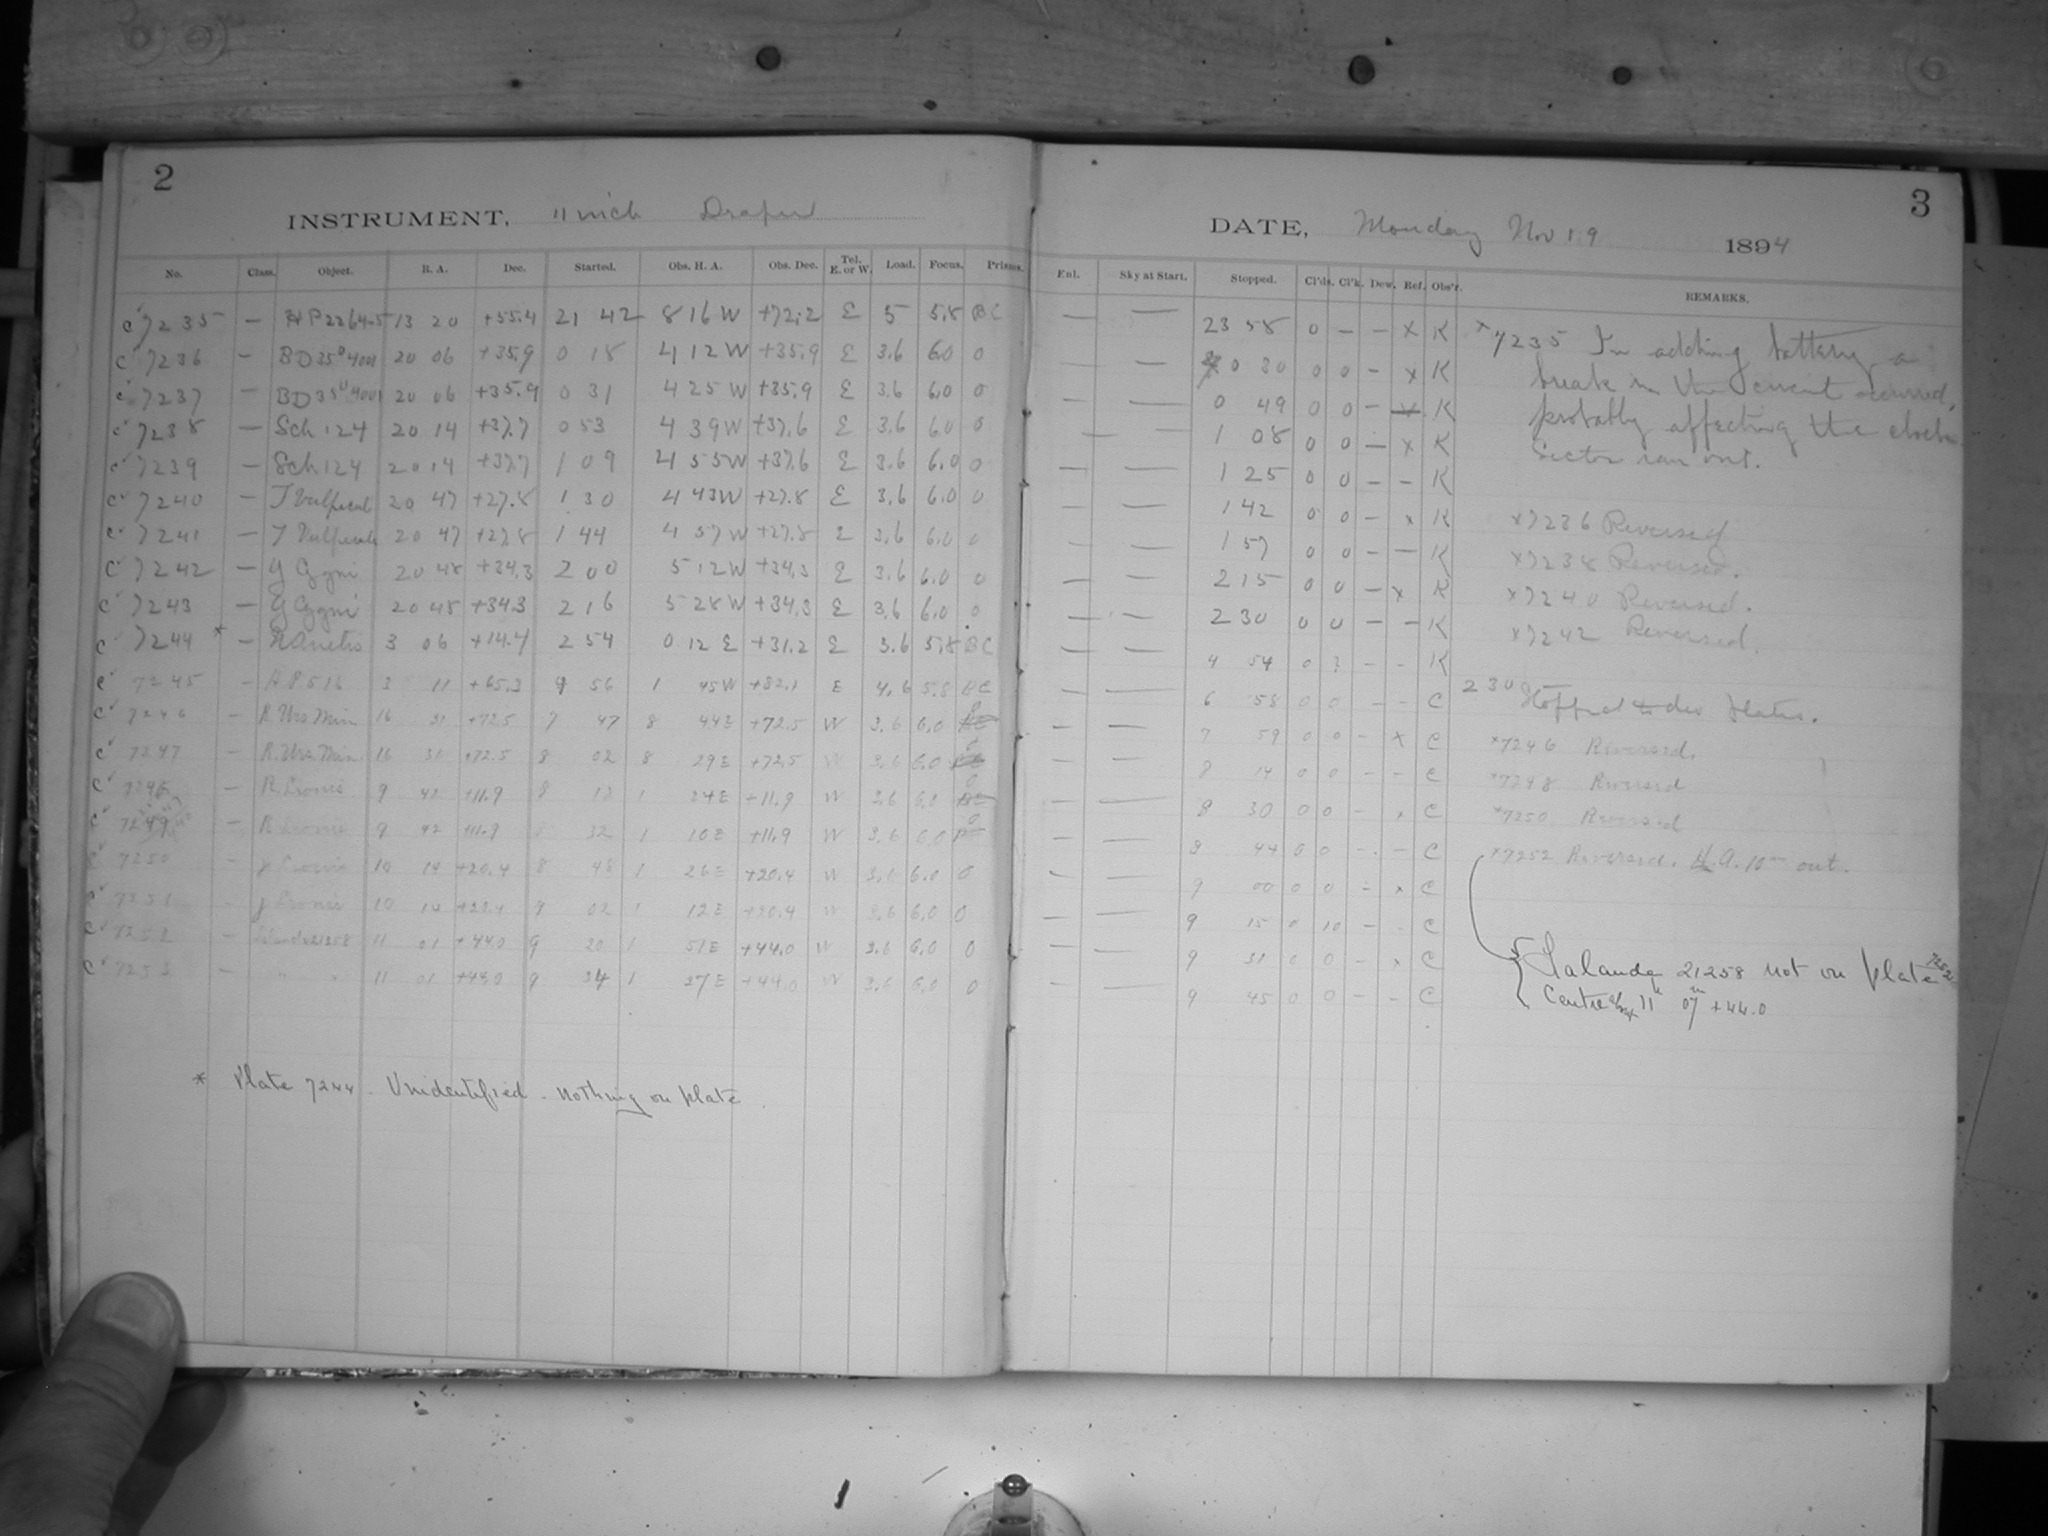 2
INSTRUMENT, 11 inch Draper
No. Class. Object. R. A. Dec. Started. Obs. H. A. Obs. Dec. Tel. E. or W. Load. Focus. Prisms.
C 7235 — HP2264-5 13 20 +55.4 21 42 8 16 W +72.2 E 5 5.8 BC
C 7236 — BD 35° 4001 20 06 +35.9 0 18 4 12 W +35.9 E 3.6 6.0 0
C 7237 — BD 35° 4001 20 06 +35.9 0 31 4 25 W +35.9 E 3.6 6.0 0
C 7238 — Sch 124 20 14 +37.7 0 53 4 39 W +37.6 E 3.6 6.0 0
C 7239 — Sch 124 20 14 +37.7 1 09 4 55 W +37.6 E 3.6 6.0 0
C 7240 — T Vulpecul 20 47 +27.8 1 30 4 43 W +27.8 E 3.6 6.0 0
C 7241 — T Vulpecula 20 47 +27.8 1 44 4 57 W +27.8 E 3.6 6.0 0
C 7242 — Y Cygni 20 48 +34.3 2 00 5 12 W +34.3 E 3.6 6.0 0
C 7243 — Y Cygni 20 48 +34.3 2 16 5 28 W +34.3 E 3.6 6.0 0
C 7244 * — 3 06 +14.4 2 54 0 12 E +31.2 E 3.6 5.8 BC
C 7245 — 3 11 +65.3 56 1 45 W +82.1 E 4.6 5.8 BC
C 7246 — R Urs. Min. 16 31 +72.5 7 47 8 44 E +72.5 W 3.6 6.0 0
C 7247 — R. Urs. Min. 16 31 +72.5 8 02 8 29 E +72.5 W 3.6 6.0 0
C 7248 — R Leonis 9 42 +11.9 8 1 24 E +11.9 W 3.6 6.0 0
C 7249 — R Leonis 9 42 +11.9 32 1 10 E +11.9 W 3.6 6.0 0
C 7250 — γ Leonis 10 14 +20.4 8 48 1 26 E +20.4 W 3.6 6.0 0
C 7251 — γ Leonis 10 14 +20.4 9 02 1 12 E +20.4 W 3.6 6.0 0
C 7252 — Lalande 21258 11 01 +44.0 9 20 1 51 E +44.0 W 3.6 6.0 0
C 7253 — " " 11 01 +44.0 9 34 1 37 E +44.0 W 3.6 6.0 0
* Plate 7244 - Unidentified - nothing on plate
3
DATE, Monday Nov 19 1894
Enl. Sky at Start. Stopped. Cl'ds. Cl'k. Dew. Ref. Obs'r. REMARKS.
— — 23 58 0 — — x K
— — 0 30 0 0 — x K
— — 0 49 0 0 — K
— — 1 08 0 0 — x K
— — 1 25 0 0 — — K
— — 1 42 0 0 — x K
— — 1 57 0 0 — — K
— — 2 15 0 0 — x K
— — 2 30 0 0 — — K
— — 4 54 0 - - K
— — 6 58 0 0 - - C
— — 7 59 0 0 - x C
— — 8 14 0 0 - - C
— — 8 30 0 0 - x C
— — 8 44 0 0 - - C
— — 9 00 0 0 - x C
— — 9 15 0 10 - - C
— — 9 31 0 0 - x C
— — 9 45 0 0 - - C
x 7235 In adding battery a
break in the circuit occurred,
probably affecting the clock.
Sector ran out.
x 7236 Reversed
x 7238 Reversed.
x 7240 Reversed.
x 7242 Reversed.
2 30 Stopped to dev plates.
x 7246 Reversed.
x 7248 Reversed
x 7250 Reversed
x 7252 Reversed. H.A. 10m out.
Lalande 21258 not on plate 7252
Centre 11h 07m +44.0